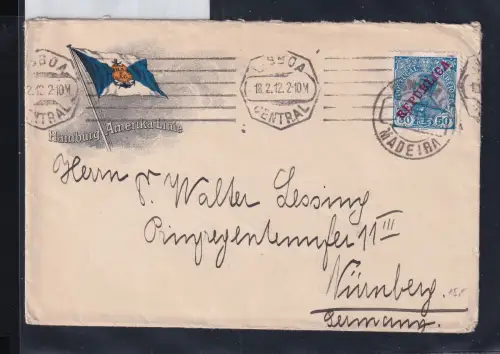 LISBOA
18.2.12. 2-10M
CENTRAL
LISBOA
18.2.12. 2-10M
CENTRAL
REPUBLICA
50 REIS 50
MADEIRA
Hamburg Amerika Linie
Herrn Walter Lessing
Prinzregentenufer 11 III
Nürnberg.
Germany.